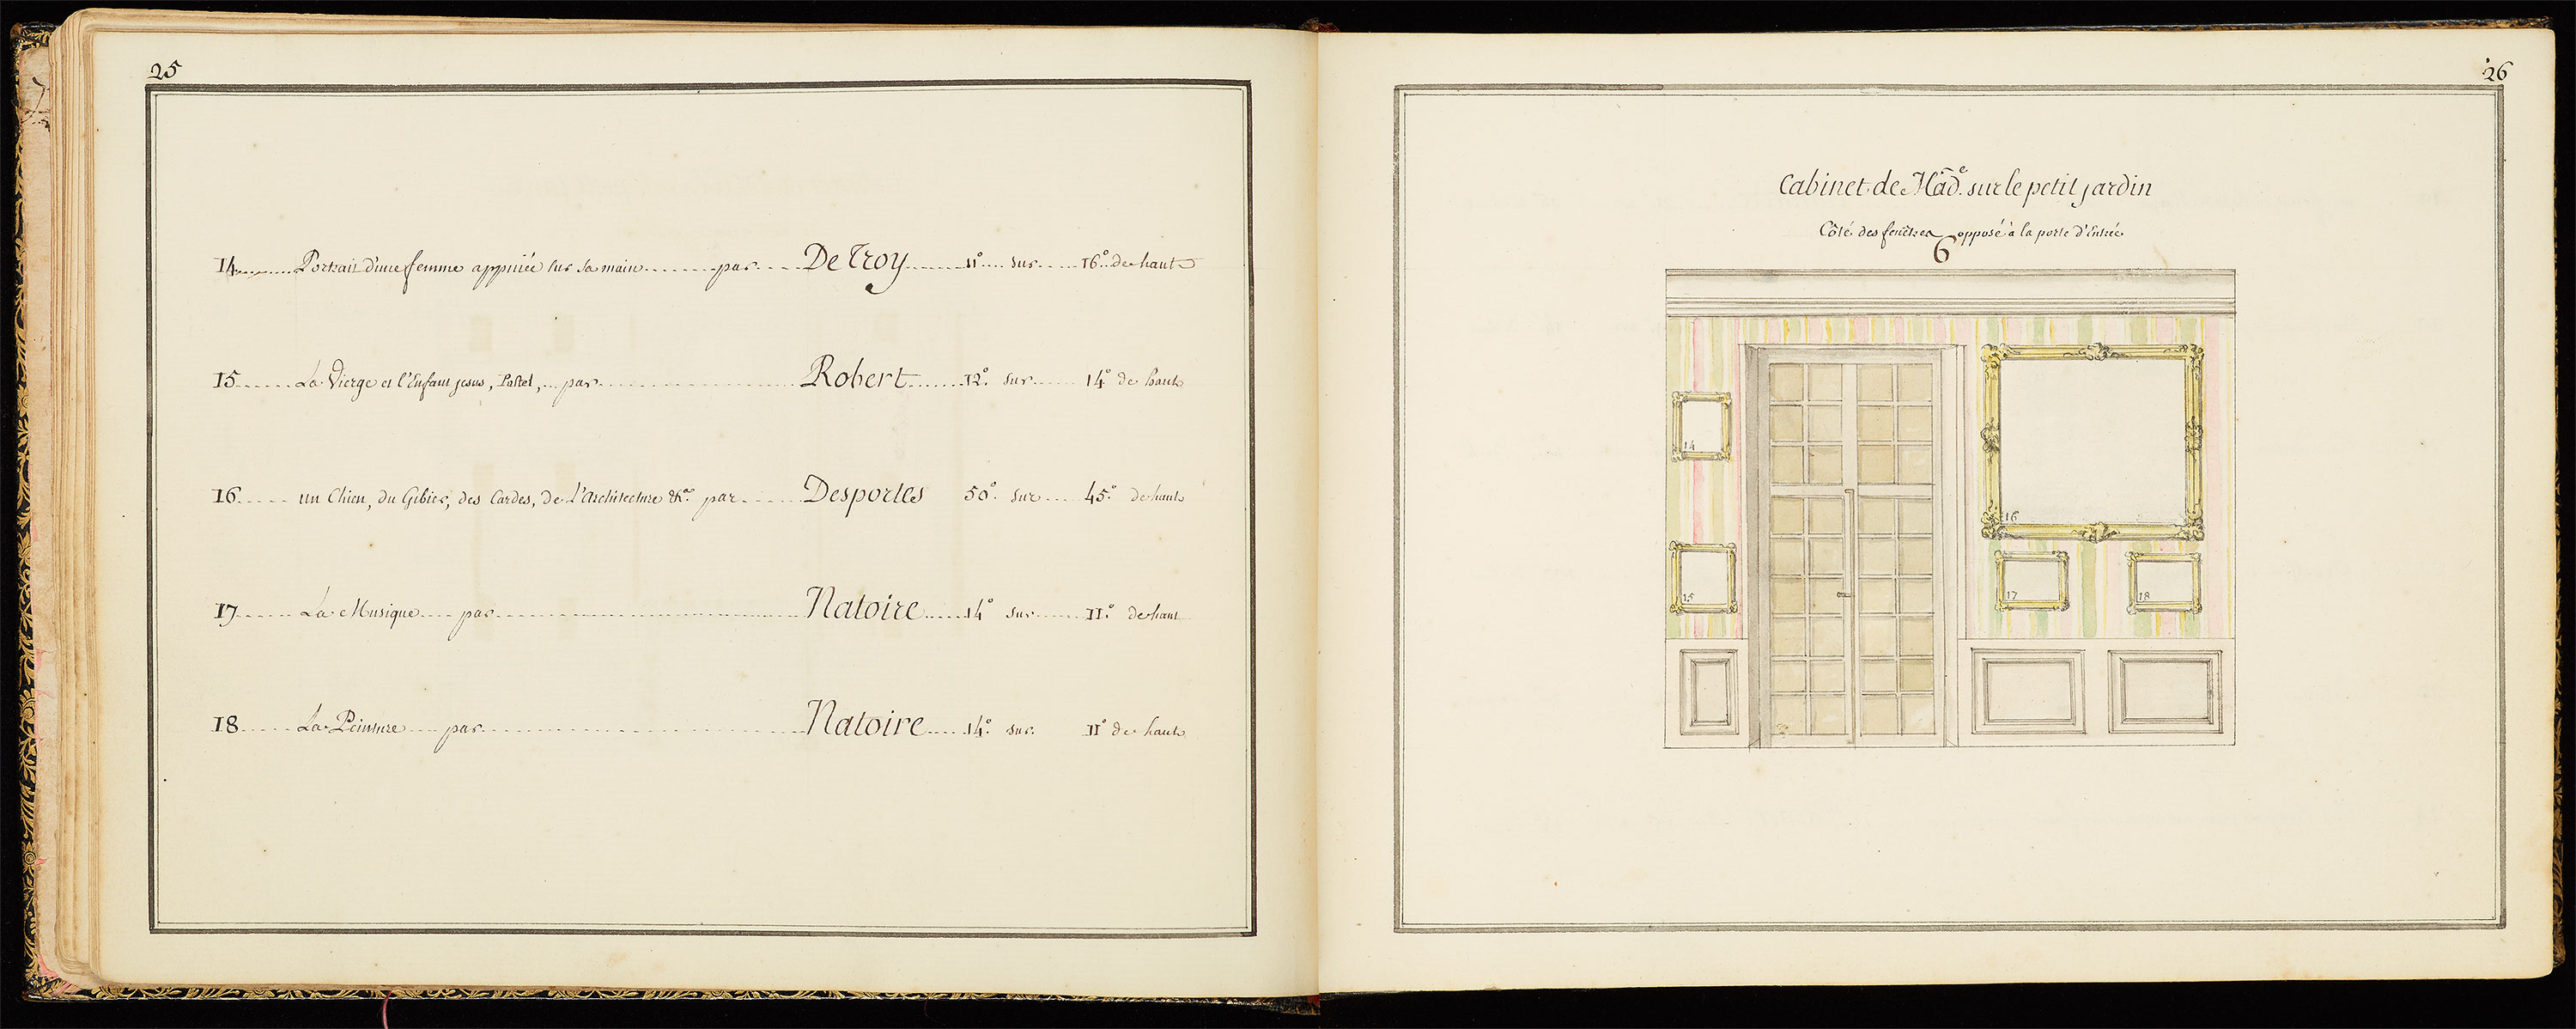 25
14 Portrait d'une femme appuiée sur sa main par De Troy 11° sur 16° de haut
15 La Vierge et l'Enfant jesus, Pastel, par Robert 12° sur 14° de haut
16 un Chien, du Gibier, des Cardes, de l'Architecture &c.ª par Desportes 50° sur 45° de haut
17 La Musique par Natoire 14° sur 11° de haut
18 La Peinture par Natoire 14° sur 11° de haut
26
Cabinet de Mad.e sur le petit jardin
Côté des fenêtres opposé à la porte d'Entrée
6
14
16
15
17
18